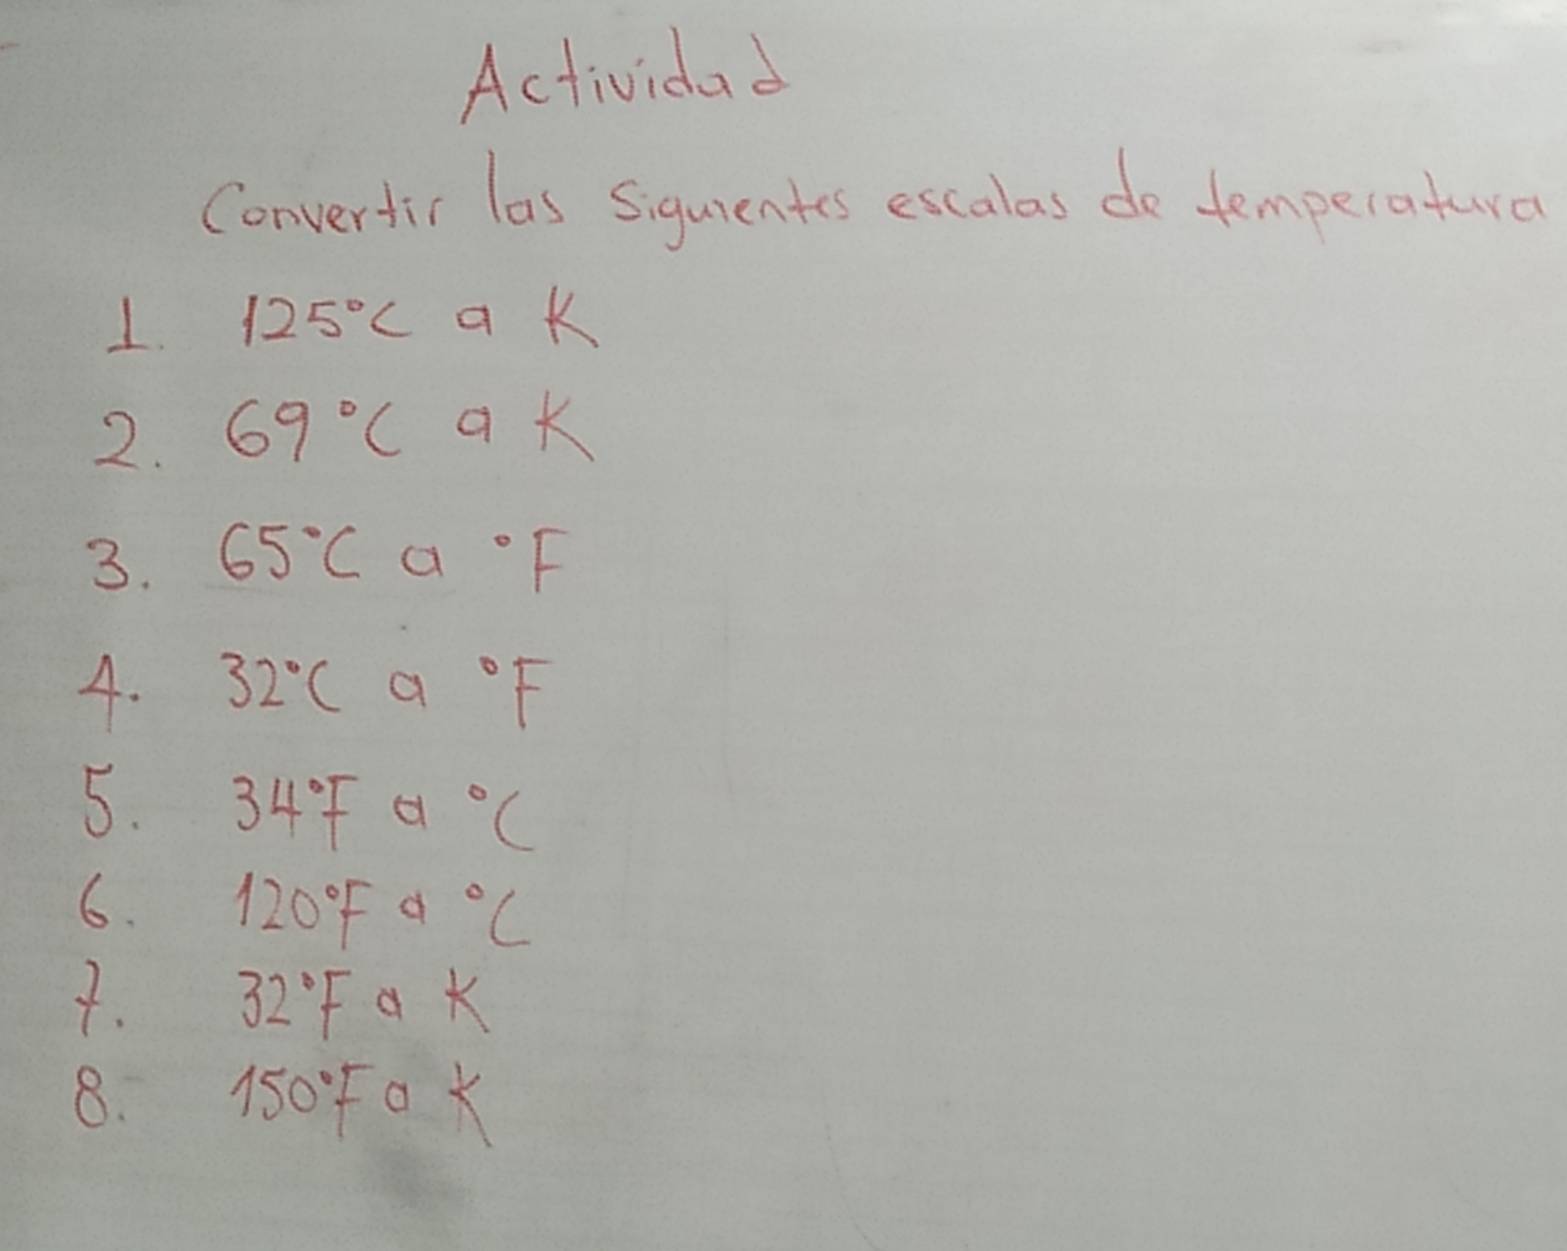 Actividad
Convertir las siguientes escalas de temperatura
1. 125°C a K
2. 69°C a K
3. 65°C a °F
4. 32°C a °F
5. 34°F a °C
6. 120°F a °C
7. 32°F a K
8. 150°F a K